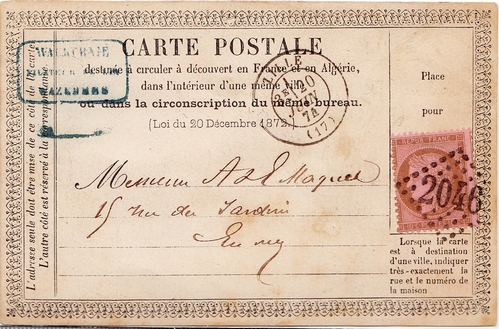 CARTE POSTALE
destinée à circuler à découvert en France et en Algérie,
dans l'intérieur d'une même ville
ou dans la circonscription du même bureau.
(Loi du 20 Décembre 1872)
L'adresse seule doit être mise de ce côté de la carte
L'autre côté est réservé à la correspondance
WALKCHAIE
MAZEBERS
LILLE
20
JUIN
74
(17)
Place
pour
REPUB FRANC
2046
Messieurs A & L Maquet
15 rue du Jardin
En ville
Lorsque la carte
est à destination
d'une ville, indiquer
très-exactement la
rue et le numéro de
la maison